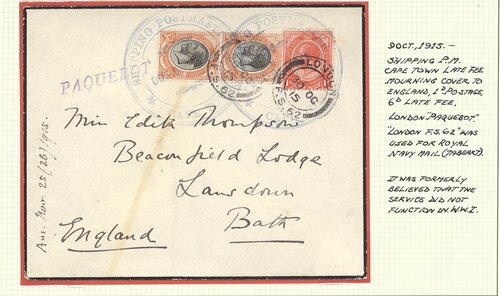 SHIPPING POSTMAST
SHIPPING POSTMA
PAQUEBOT
LONDON
30 OC
15
F.S. 62
LONDON
30 OC
15
F.S. 62
Miss Edith Thompson
Beaconfield Lodge
Lansdown
Bath
England
Ans. Nov. 25 (28) 1915.
9 OCT, 1915. —
SHIPPING P.M.
CAPE TOWN LATE FEE
MOURNING COVER TO
ENGLAND, 1D POSTAGE,
6D LATE FEE.
LONDON "PAQUEBOT."
"LONDON F.S. 62" WAS
USED FOR ROYAL
NAVY MAIL (TABEART).
IT WAS FORMERLY
BELIEVED THAT THE
SERVICE DID NOT
FUNCTION IN W.W.I.